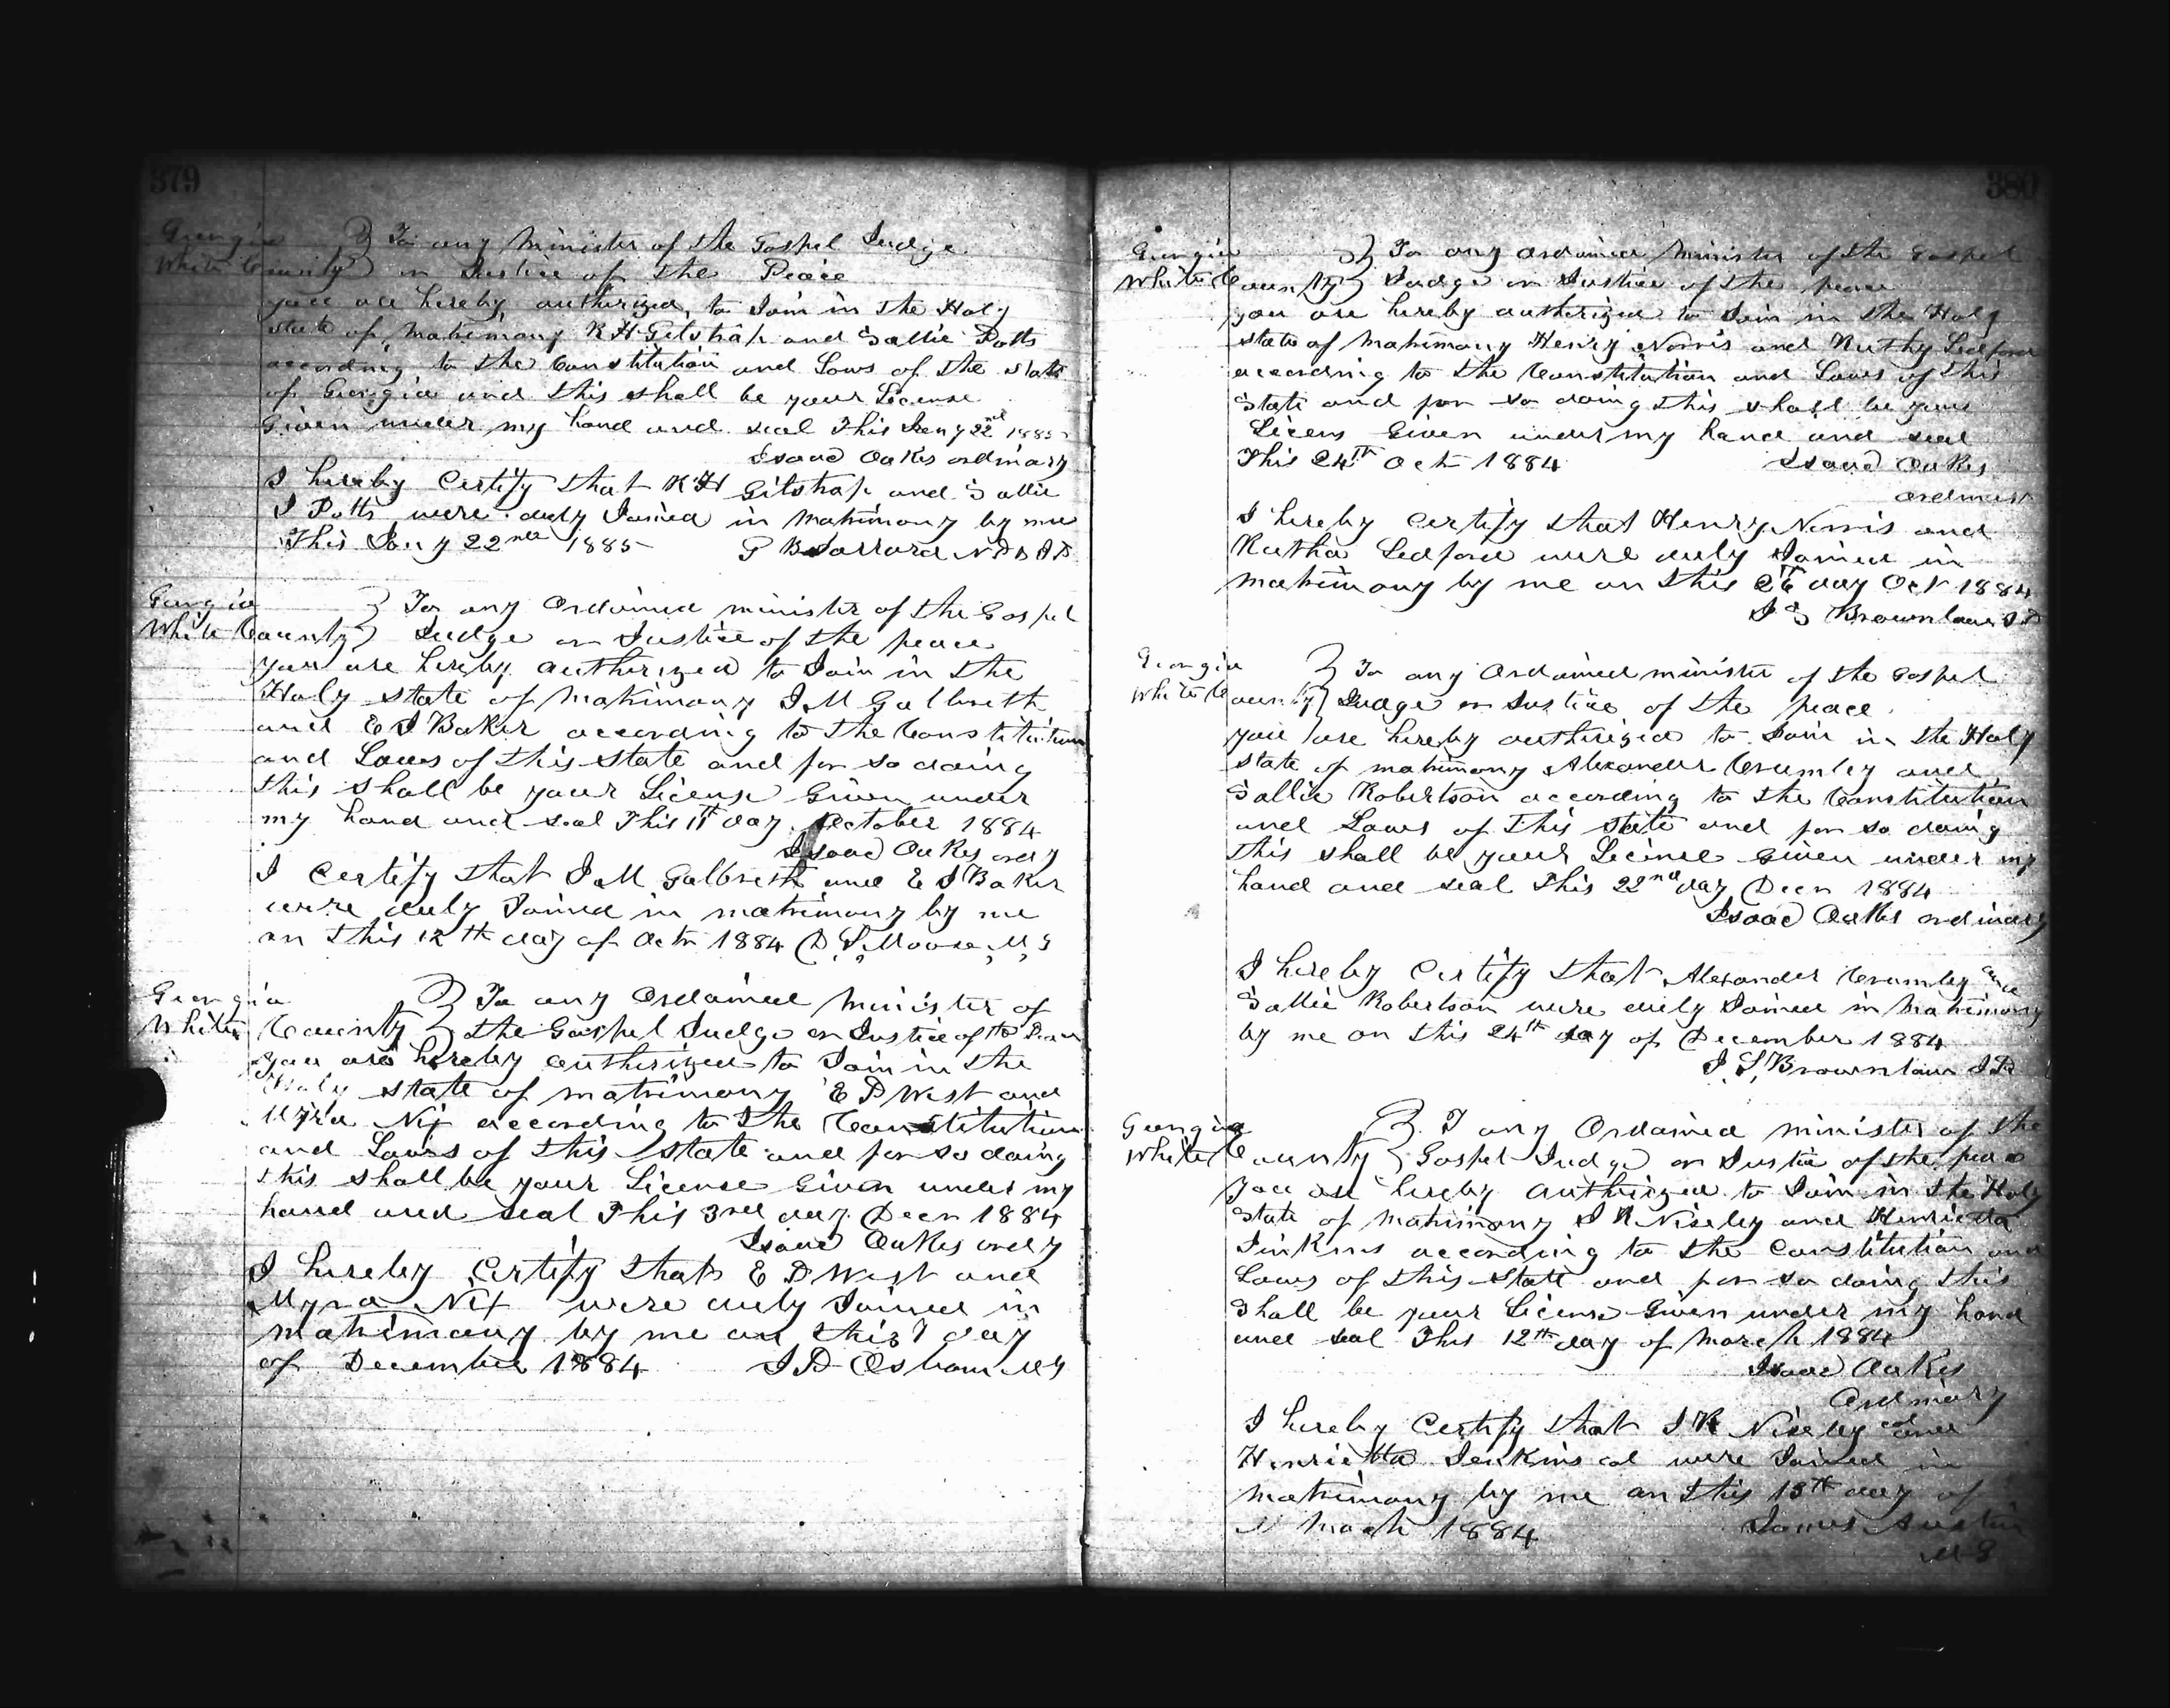 379
Georgia } To any Minister of the Gospel Judge
White County } or Justice of the Peace
you are hereby authorized to Join in the Holy
state of Matrimony R H Gilstrap and Sallie Potts
according to the Constitution and Laws of the state
of Georgia and this shall be your License
Given under my hand and seal This Jany 22nd 1885
Isaac Oakes ordinary
I hereby Certify that R H Gilstrap and Sallie
J Potts were duly Joined in Matrimony by me
This Jany 22nd 1885 G B
Georgia } To any Ordained minister of the Gospel
White County } Judge or Justice of the peace
you are hereby authorized to Join in the
Holy state of Matrimony J M Galbreth
and E J Baker according to the Constitution
and Laws of this state and for so doing
this shall be your License Given under
my hand and seal This 11th day October 1884
Isaac Oakes ordy
I Certify that J M Galbreth and E J Baker
were duly Joined in matrimony by me
on this 12th day of Octr 1884 D, S, Moose, M, G
Georgia } To any Ordained Minister of
White County } the Gospel Judge or Justice of the Peace
you are hereby authorized to Join in the
Holy state of matrimony E D West and
Myra Nix according to the Constitution
and Laws of this state and for so doing
this shall be your License Given under my
hand and seal This 3rd day Decr 1884
Isaac Oakes ordy
I hereby Certify that E D West and
Myra Nix were duly Joined in
matrimony by me on this 7 day
of December 1884 J D Osborn MG
380
Georgia } To any ordained Minister of the Gospel
White County } Judge or Justice of the peace
you are hereby authorized to Join in the Holy
state of Matrimony Henry Norris and Ruthy Ledford
according to the Constitution and Laws of this
State and for so doing this shall be your
Licens Given under my hand and seal
This 24th Oct 1884 Isaac Oakes
I hereby Certify that Henry Norris and
Rutha Ledford were duly Joined in
matrimony by me on this 26 day Oct 1884
J S Brownlow J P
Georgia } To any Ordained minister of the Gospel
White County } Judge or Justice of the peace
you are hereby authorized to Join in the Holy
state of matrimony Alexander Crumley and
Sallie Robertson according to the Constitution
and Laws of this state and for so doing
this shall be your License Given under my
hand and seal This 22nd day Decr 1884
Isaac Oakes ordinary
I hereby Certify that Alexander Crumley and
Sallie Robertson were duly Joined in Matrimony
by me on this 24th day of December 1884
J, S, Brownlow J P
Georgia } T any Ordained minister of the
White County } Gospel Judge or Justice of the peace
you are hereby authorized to Join in the Holy
State of Matrimony J R Niseley and Henrietta
Jinkins according to the Constitution and
Laws of this state and for so doing this
shall be your License Given under my hand
and seal This 12th day of March 1884
Isaac Oakes
Ordinary
I hereby Certify that J R Niseley col and
Henrietta Jenkins col were Joined in
matrimony by me on this 13th day of
March 1884 James Austin
M G